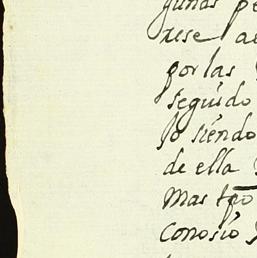 gunas pe
rese ae
por las
seguido
lo siendo
de ella
mas tpo
conosio